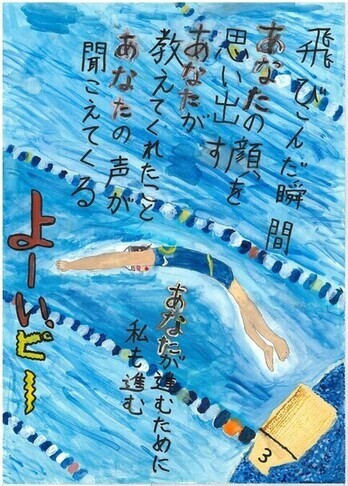 飛びこんだ瞬間
あなたの顔を
思い出す
あなたが
教えてくれたこと
あなたの声が
聞こえてくる
よーい、ピー
あなたが進むために
私も進む
3